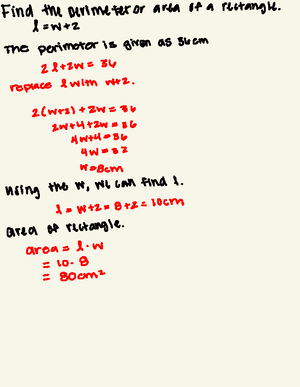 Find the perimeter or area of a rectangle.
l = w+2
The perimeter is given as 36cm
2l+2w = 36
replace l with w+2.
2(w+2) + 2w = 36
2w+4+2w = 36
4w+4 = 36
4w = 32
w=8cm
Using the w, we can find l.
l = w+2 = 8+2 = 10cm
area of rectangle.
area = l·w
= 10·8
= 80cm²